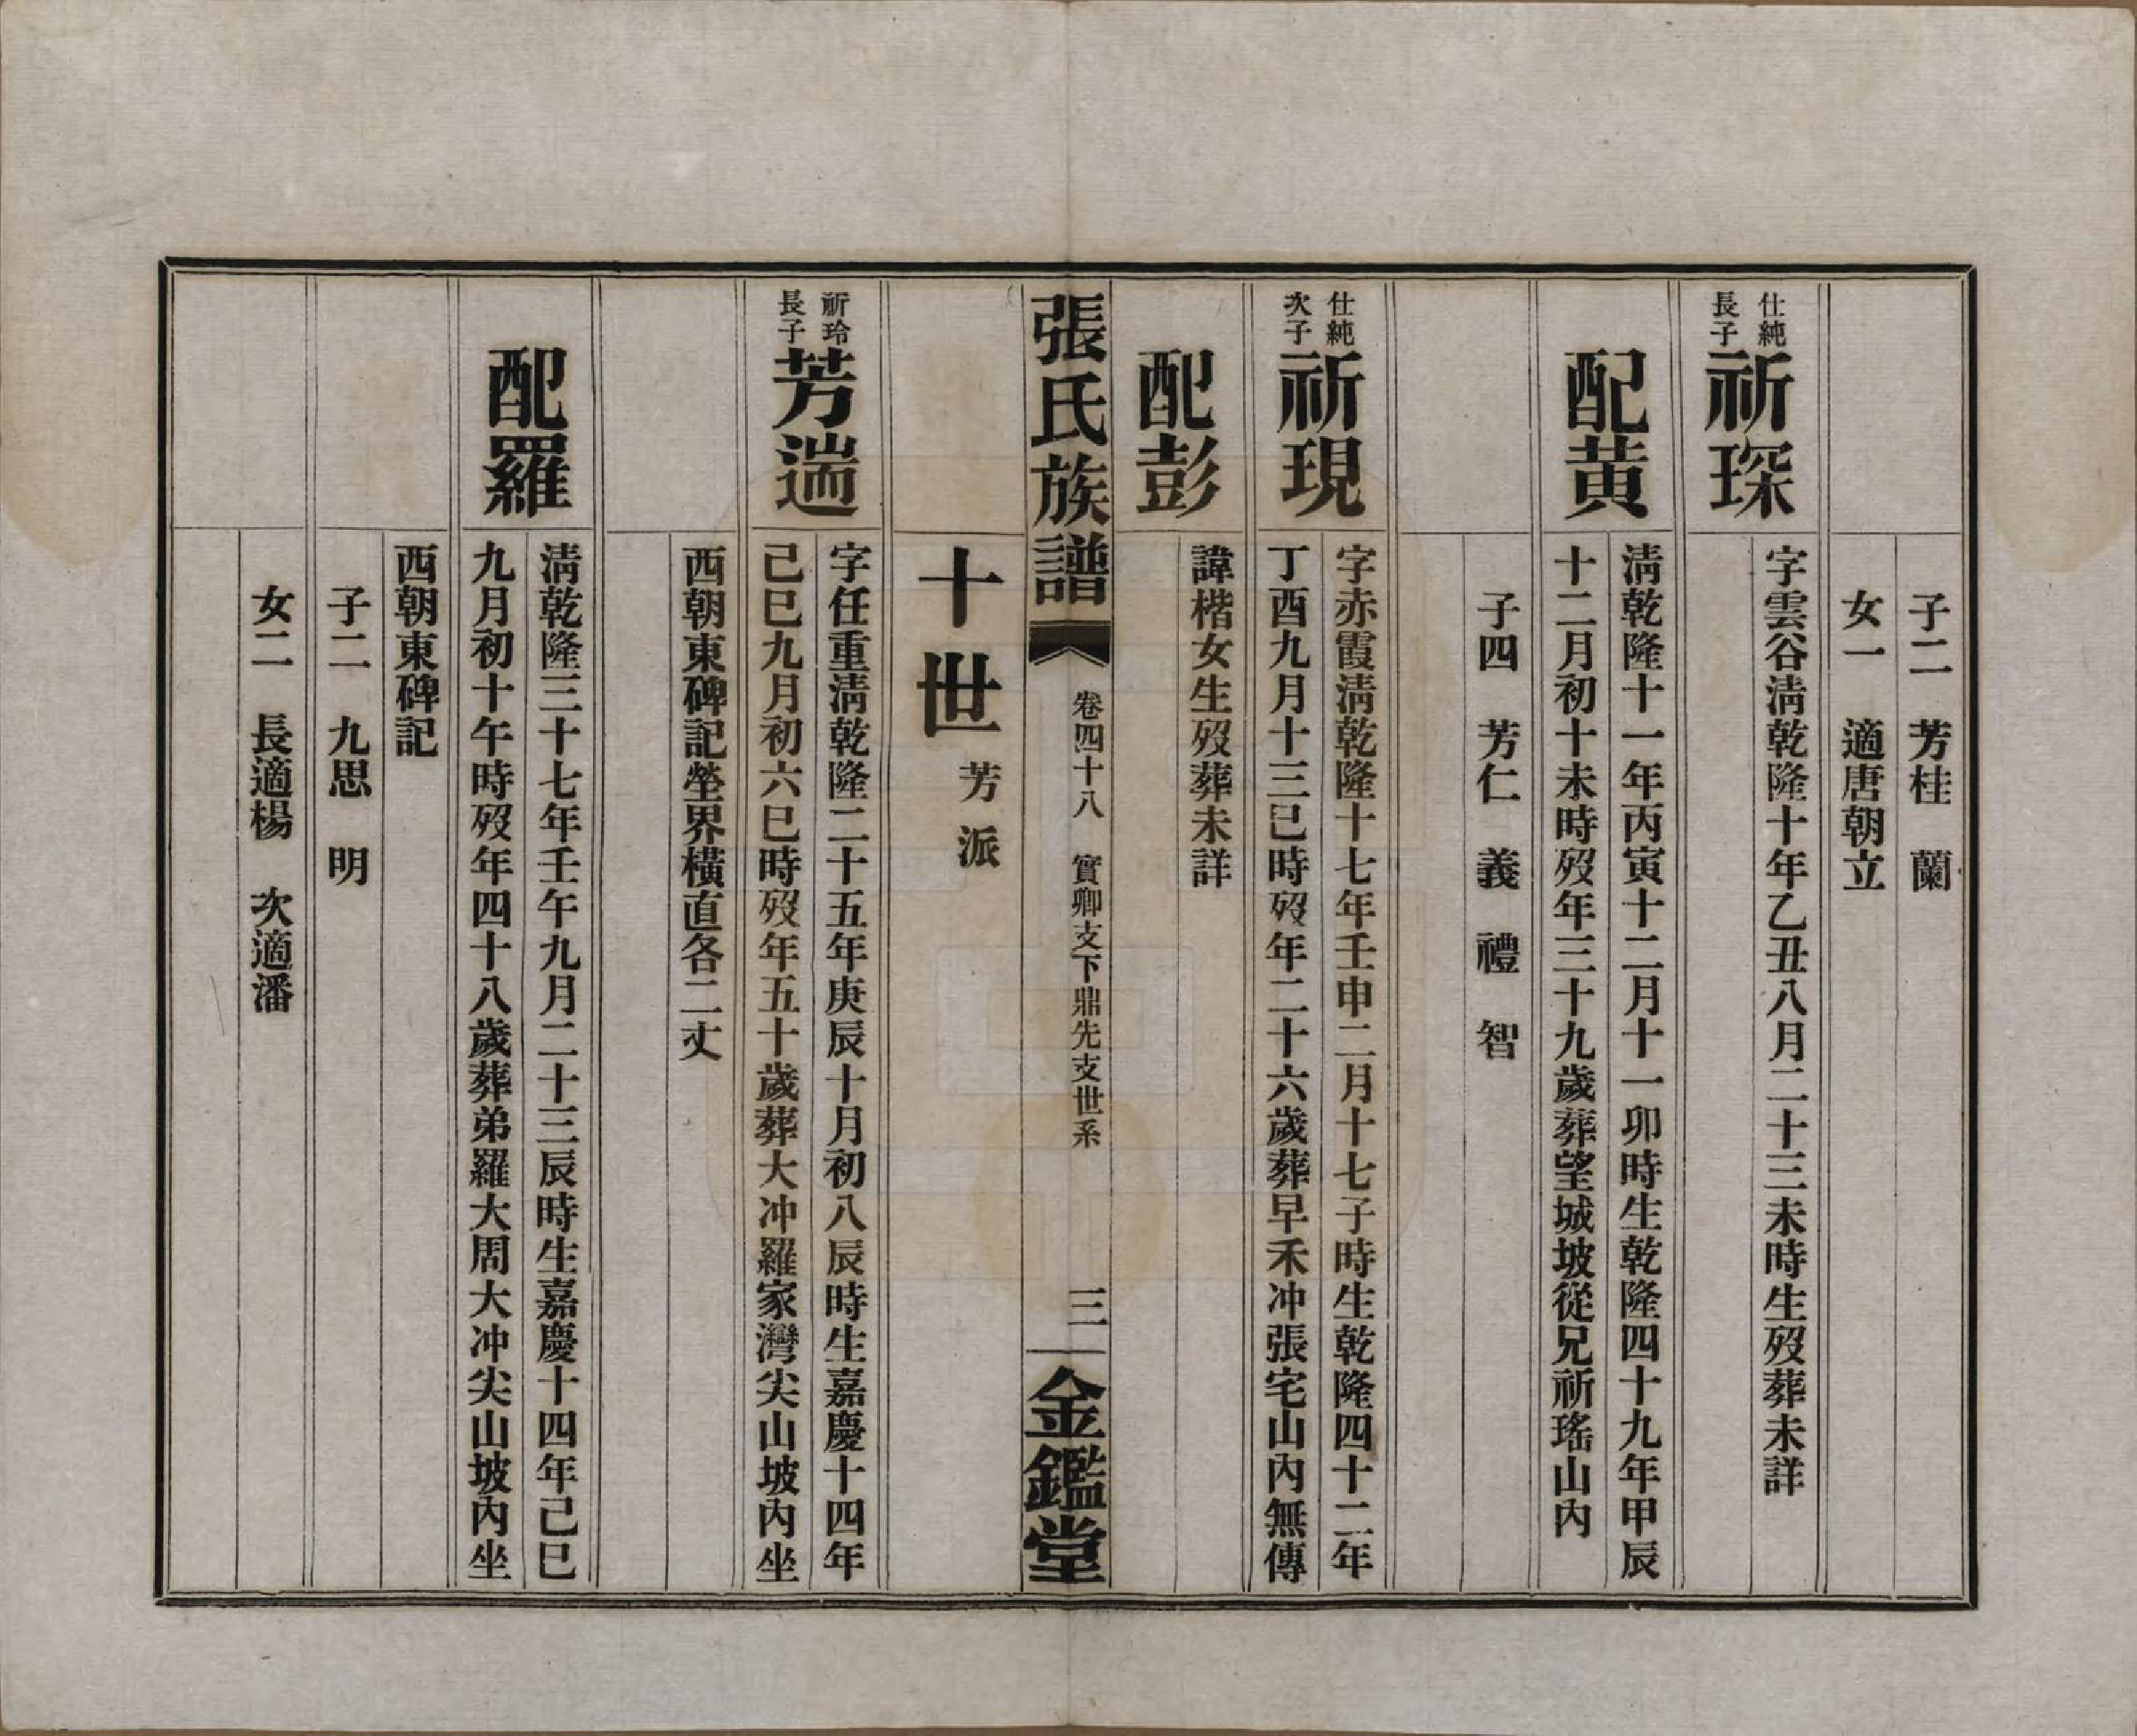 子二　芳桂　蘭
女一　適唐朝立
仕純
長子
祈琛
字雲谷淸乾隆十年乙丑八月二十三未時生歿葬未詳
配黃
淸乾隆十一年丙寅十二月十一卯時生乾隆四十九年甲辰
十二月初十未時歿年三十九歲葬望城坡從兄祈瑤山內
子四　芳仁　義　禮　智
仕純
次子
祈現
字赤霞淸乾隆十七年壬申二月十七子時生乾隆四十二年
丁酉九月十三巳時歿年二十六歲葬早禾冲張宅山內無傳
配彭
諱楷女生歿葬未詳
張氏族譜　卷四十八　實卿支下鼎先支世系　三　金鑑堂
十世　芳派
祈玲
長子
芳遄
字任重淸乾隆二十五年庚辰十月初八辰時生嘉慶十四年
己巳九月初六巳時歿年五十歲葬大冲羅家灣尖山坡內坐
西朝東碑記塋界橫直各二丈
配羅
淸乾隆三十七年壬午九月二十三辰時生嘉慶十四年己巳
九月初十午時歿年四十八歲葬弟羅大周大冲尖山坡內坐
西朝東碑記
子二　九思　明
女二　長適楊　次適潘